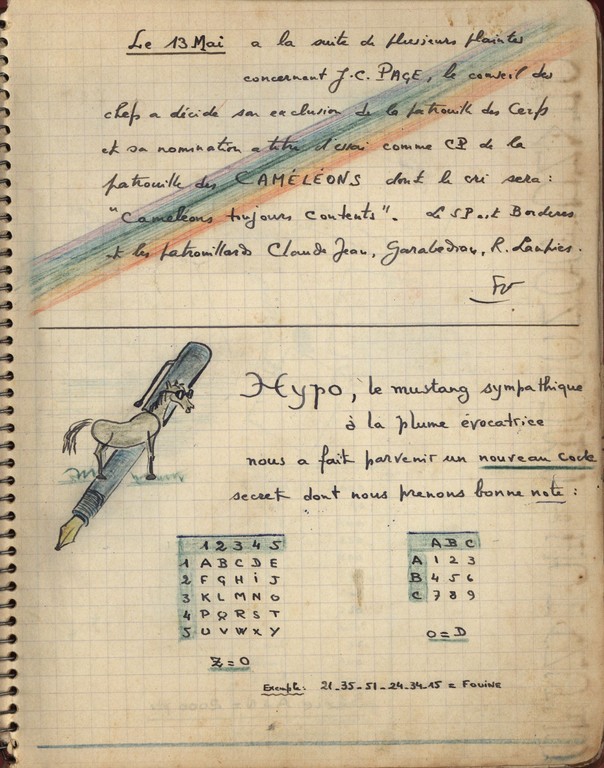 Le 13 Mai a la suite de plusieurs plaintes
concernant J.C. PAGE, le conseil des
chefs a décidé son exclusion de la patrouille des Cerfs
et sa nomination a titre d'essai comme CP de la
patrouille des CAMÉLÉONS dont le cri sera :
"Caméléons toujours contents". Le SP est Borderes
et les patrouillards Claude Jean, Garabedian, R.
Hypo, le mustang sympathique
à la plume évocatrice
nous a fait parvenir un nouveau code
secret dont nous prenons bonne note :
1 2 3 4 5
1 A B C D E
2 F G H i J
3 K L M N O
4 P Q R S T
5 U V W X Y
Z = 0
A B C
A 1 2 3
B 4 5 6
C 7 8 9
0 = D
Exemple : 21_35_51_24_34_15 = FOUINE